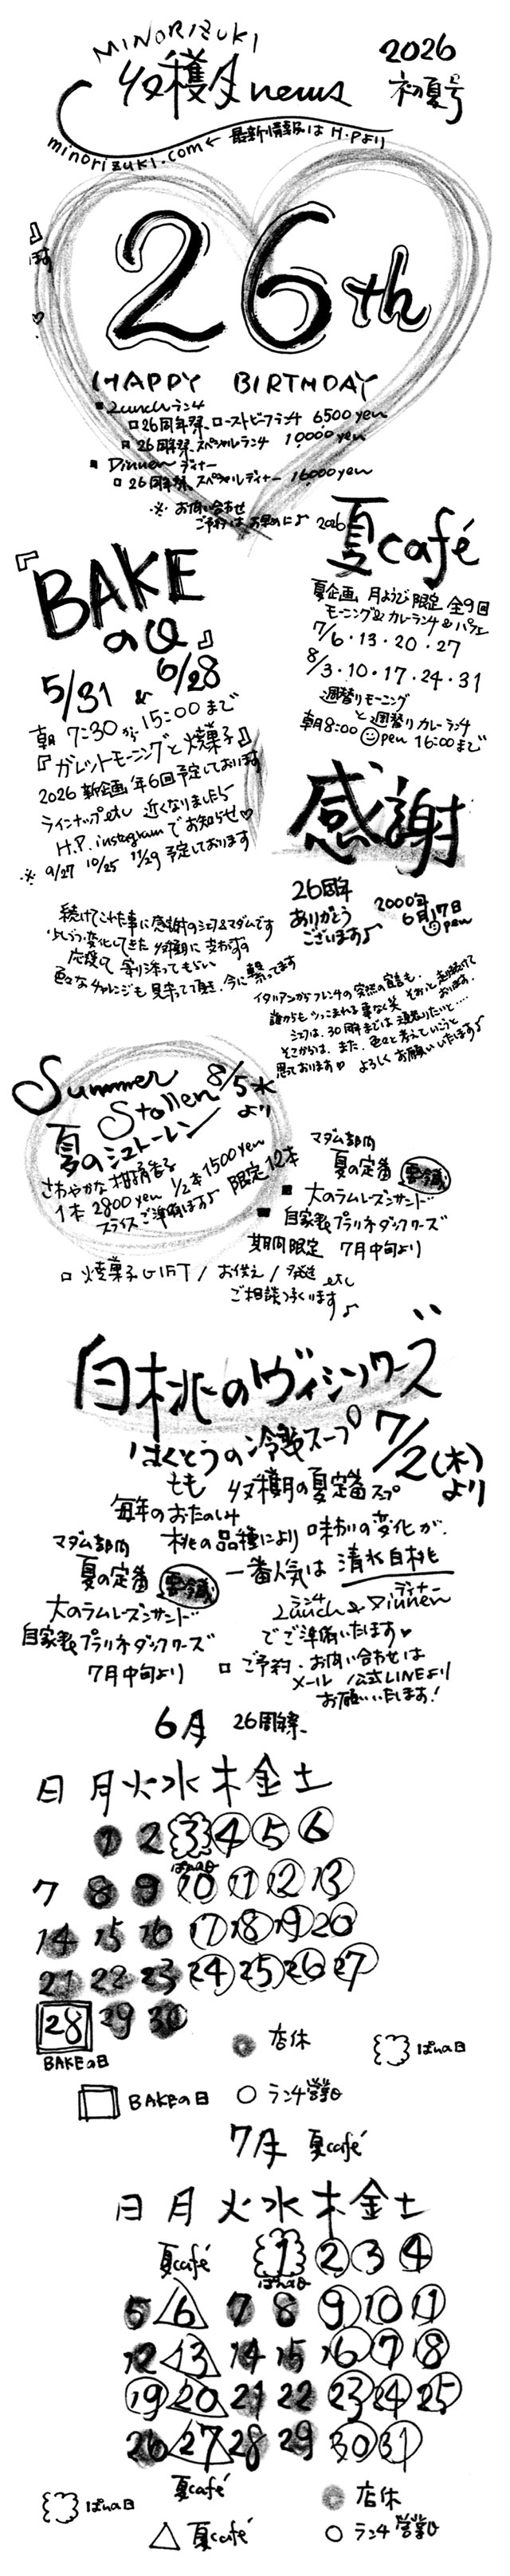 MINORIZUKI
収穫月news
2026
初夏号
minorizuki.com ← 最新情報は H.Pより
26th
HAPPY BIRTHDAY
■ Lunch ランチ
□ 26周年祭、ローストビーフランチ 6500 yen
□ 26周年祭、スペシャルランチ 10000 yen
■ Dinner ディナー
□ 26周年祭、スペシャルディナー 16000 yen
※ お問い合わせ
ご予約はお早めに♪
『BAKEの日』
5/31 & 6/28
朝 7:30から15:00まで
『ガレットモーニングと焼菓子』
2026 新企画 年6回予定しております
ラインナップetc 近くなりましたら
H.P. instagramでお知らせ♡
※ 9/27 10/25 11/29 予定しております
2026
夏café
夏企画 月ようび限定 全9回
モーニング&カレーランチ&パフェ
7/6・13・20・27
8/3・10・17・24・31
週替りモーニング
と週替りカレーランチ
朝8:00 open 16:00まで
感謝
26周年
ありがとう
ございます♪
2000年
6月17日
open
続けてこれた事に感謝のシェフ&マダムです
少しづつ変化してきた収穫月に
応援して寄り添ってもらい
色々なチャレンジも見守って頂き、今に繋ってます
イタリアンからフレンチの突然の宣言も、
誰からもつっこまれる事なく笑 そおっと走り続けて
おります。
シェフは、30周年までは頑張りたいと....
そこからは、また、色々と考えていこうと
思っております♡ よろしくお願いいたします♪
Summer
Stollen 8/5水
より
夏のシュトーレン
さわやかな柑橘香る
1本 2800 yen 1/2本 1500 yen
スライスご準備ます♪ 限定12本
マダム部門
夏の定番 要冷蔵
■ 大人のラムレーズンサンド
■ 自家製プラリネダックワーズ
期間限定 7月中旬より
□ 焼菓子GIFT / お供え / 発送 etc
ご相談つくります♪
白桃のヴィシソワーズ
はくとうの冷製スープ
7/2(木)
より
もも 収穫期の夏定番スープ
毎年のおたのしみ
桃の品種により味わいの変化が、
一番人気は 清水白桃
マダム部門
夏の定番 要冷蔵
大人のラムレーズンサンド
自家製プラリネダックワーズ
7月中旬より
ランチ ディナー
Lunch & Dinner
でご準備いたします♥
□ ご予約・お問い合わせは
メール /公式LINEより
お願いいたします!
6月 26周年祭、
日 月 火 水 木 金 土
1 2 3 4 5 6
ぱんの日
7 8 9 10 11 12 13
14 15 16 17 18 19 20
21 22 23 24 25 26 27
28 29 30
BAKEの日
店休
ぱんの日
BAKEの日
ランチ営業日
7月 夏café
日 月 火 水 木 金 土
夏café
1 2 3 4
ぱんの日
5 6 7 8 9 10 11
12 13 14 15 16 17 18
19 20 21 22 23 24 25
26 27 28 29 30 31
夏café
ぱんの日
店休
夏café
ランチ営業日